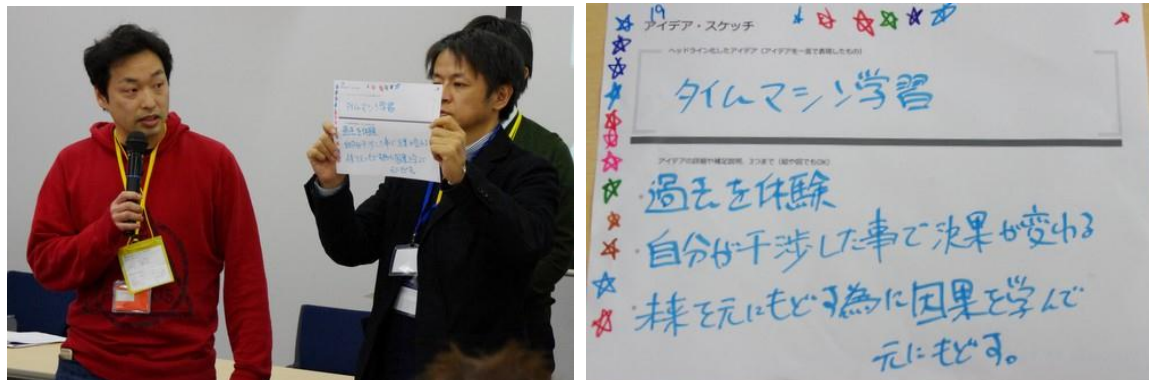 タイムマシン学習
過去を体験
19
アイデア・スケッチ
ヘッドライン化したアイデア(アイデアを一言で表現したもの)
タイムマシン学習
アイデアの詳細や補足説明、3つまで(絵や図でもOK)
・過去を体験
・自分が干渉した事で決果が変わる
・未来を元にもどす為に因果を学んで
元にもどす。